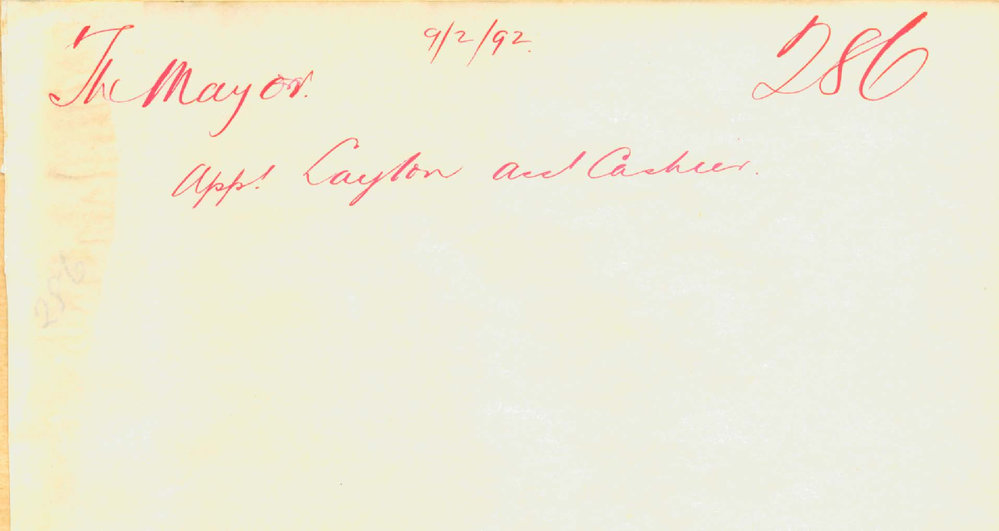 9/2/92.
The Mayor. 286
Appt Layton asst Cashier.